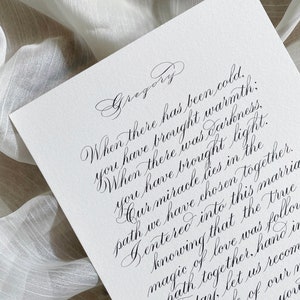 Gregory
When there has been cold,
you have brought warmth;
When there was darkness,
you have brought light.
Our miracle lies in the
path we have chosen together.
I entered into this marri
knowing that the true
magic of love was follow
path together, hand in
let us recom
of our